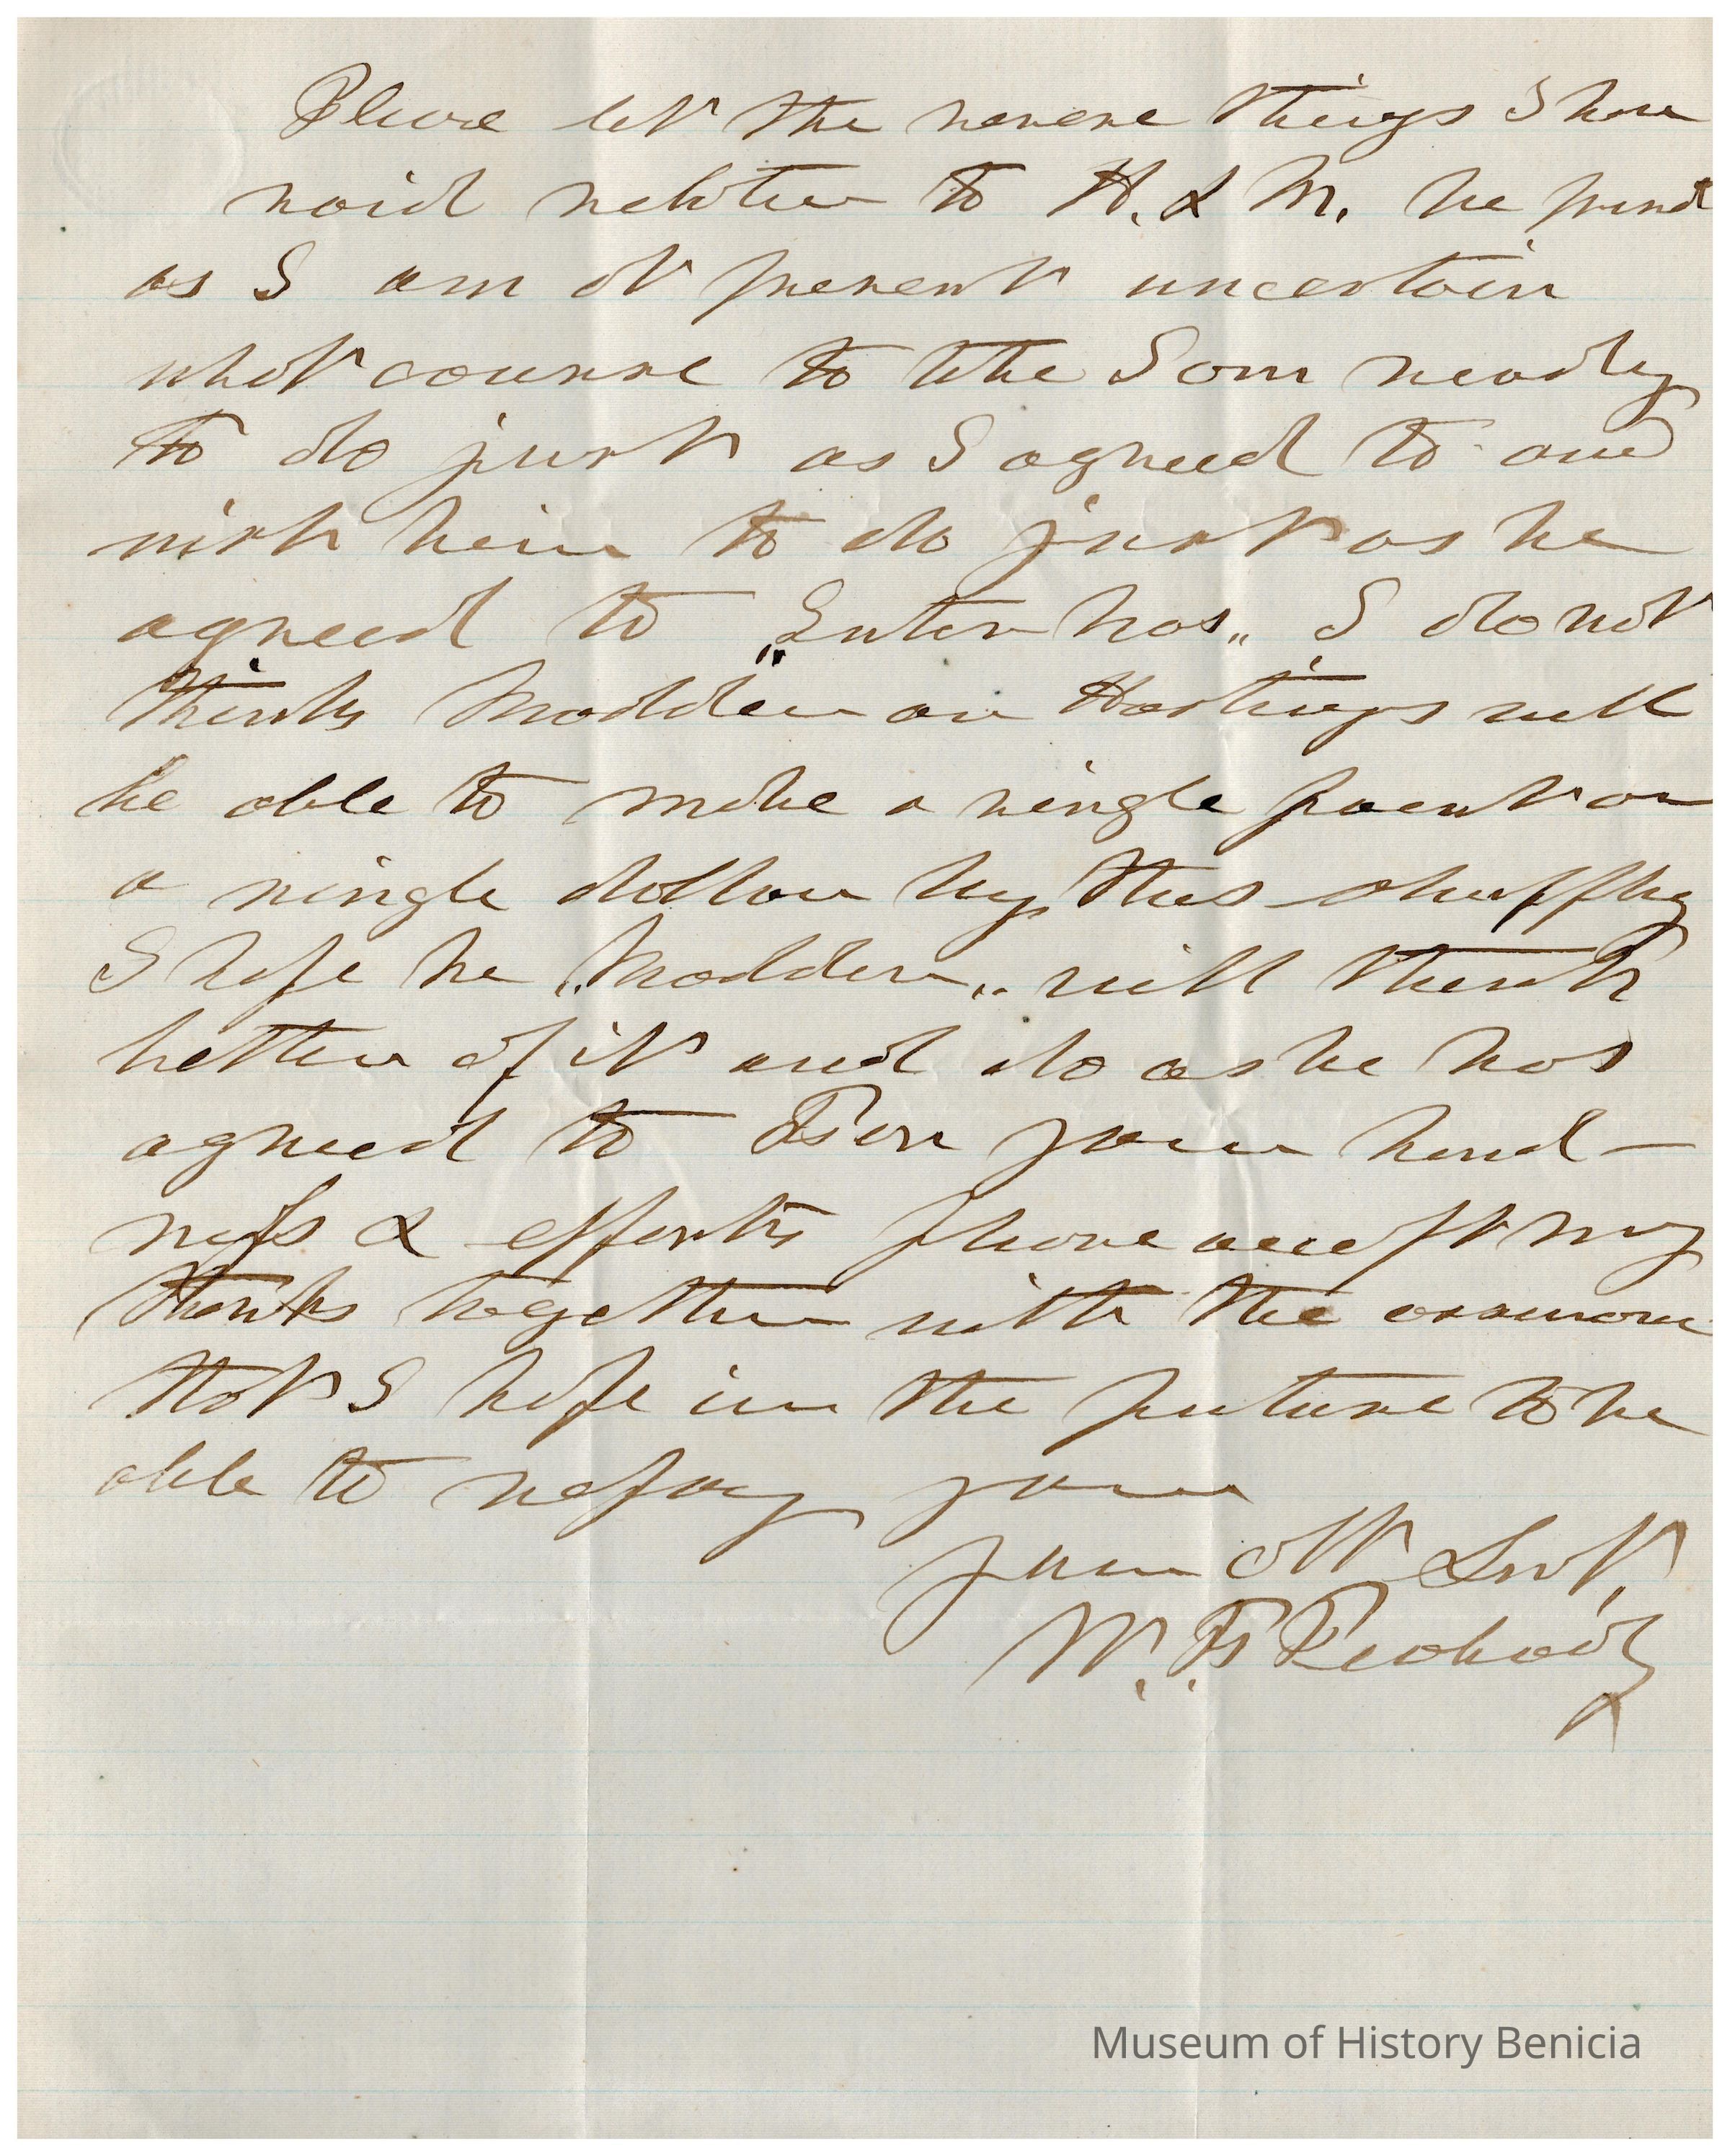 Please let the severe things I have
said relative to H. & M. be
as I am at present uncertain
what course to take I am ready
to do just as I agreed to and
wish him to do just as he
agreed to "Inter nos" I do not
think Madden or Hastings will
be able to make a single point or
a single dollar by this shuffling
I hope he "Madden" will think
better of it and do as he has
agreed to For your kind-
ness & efforts please accept my
thanks together with the assurance
that I hope in the future to be
able to repay you
your Obt Svt.
W. F. Peabody
Museum of History Benicia